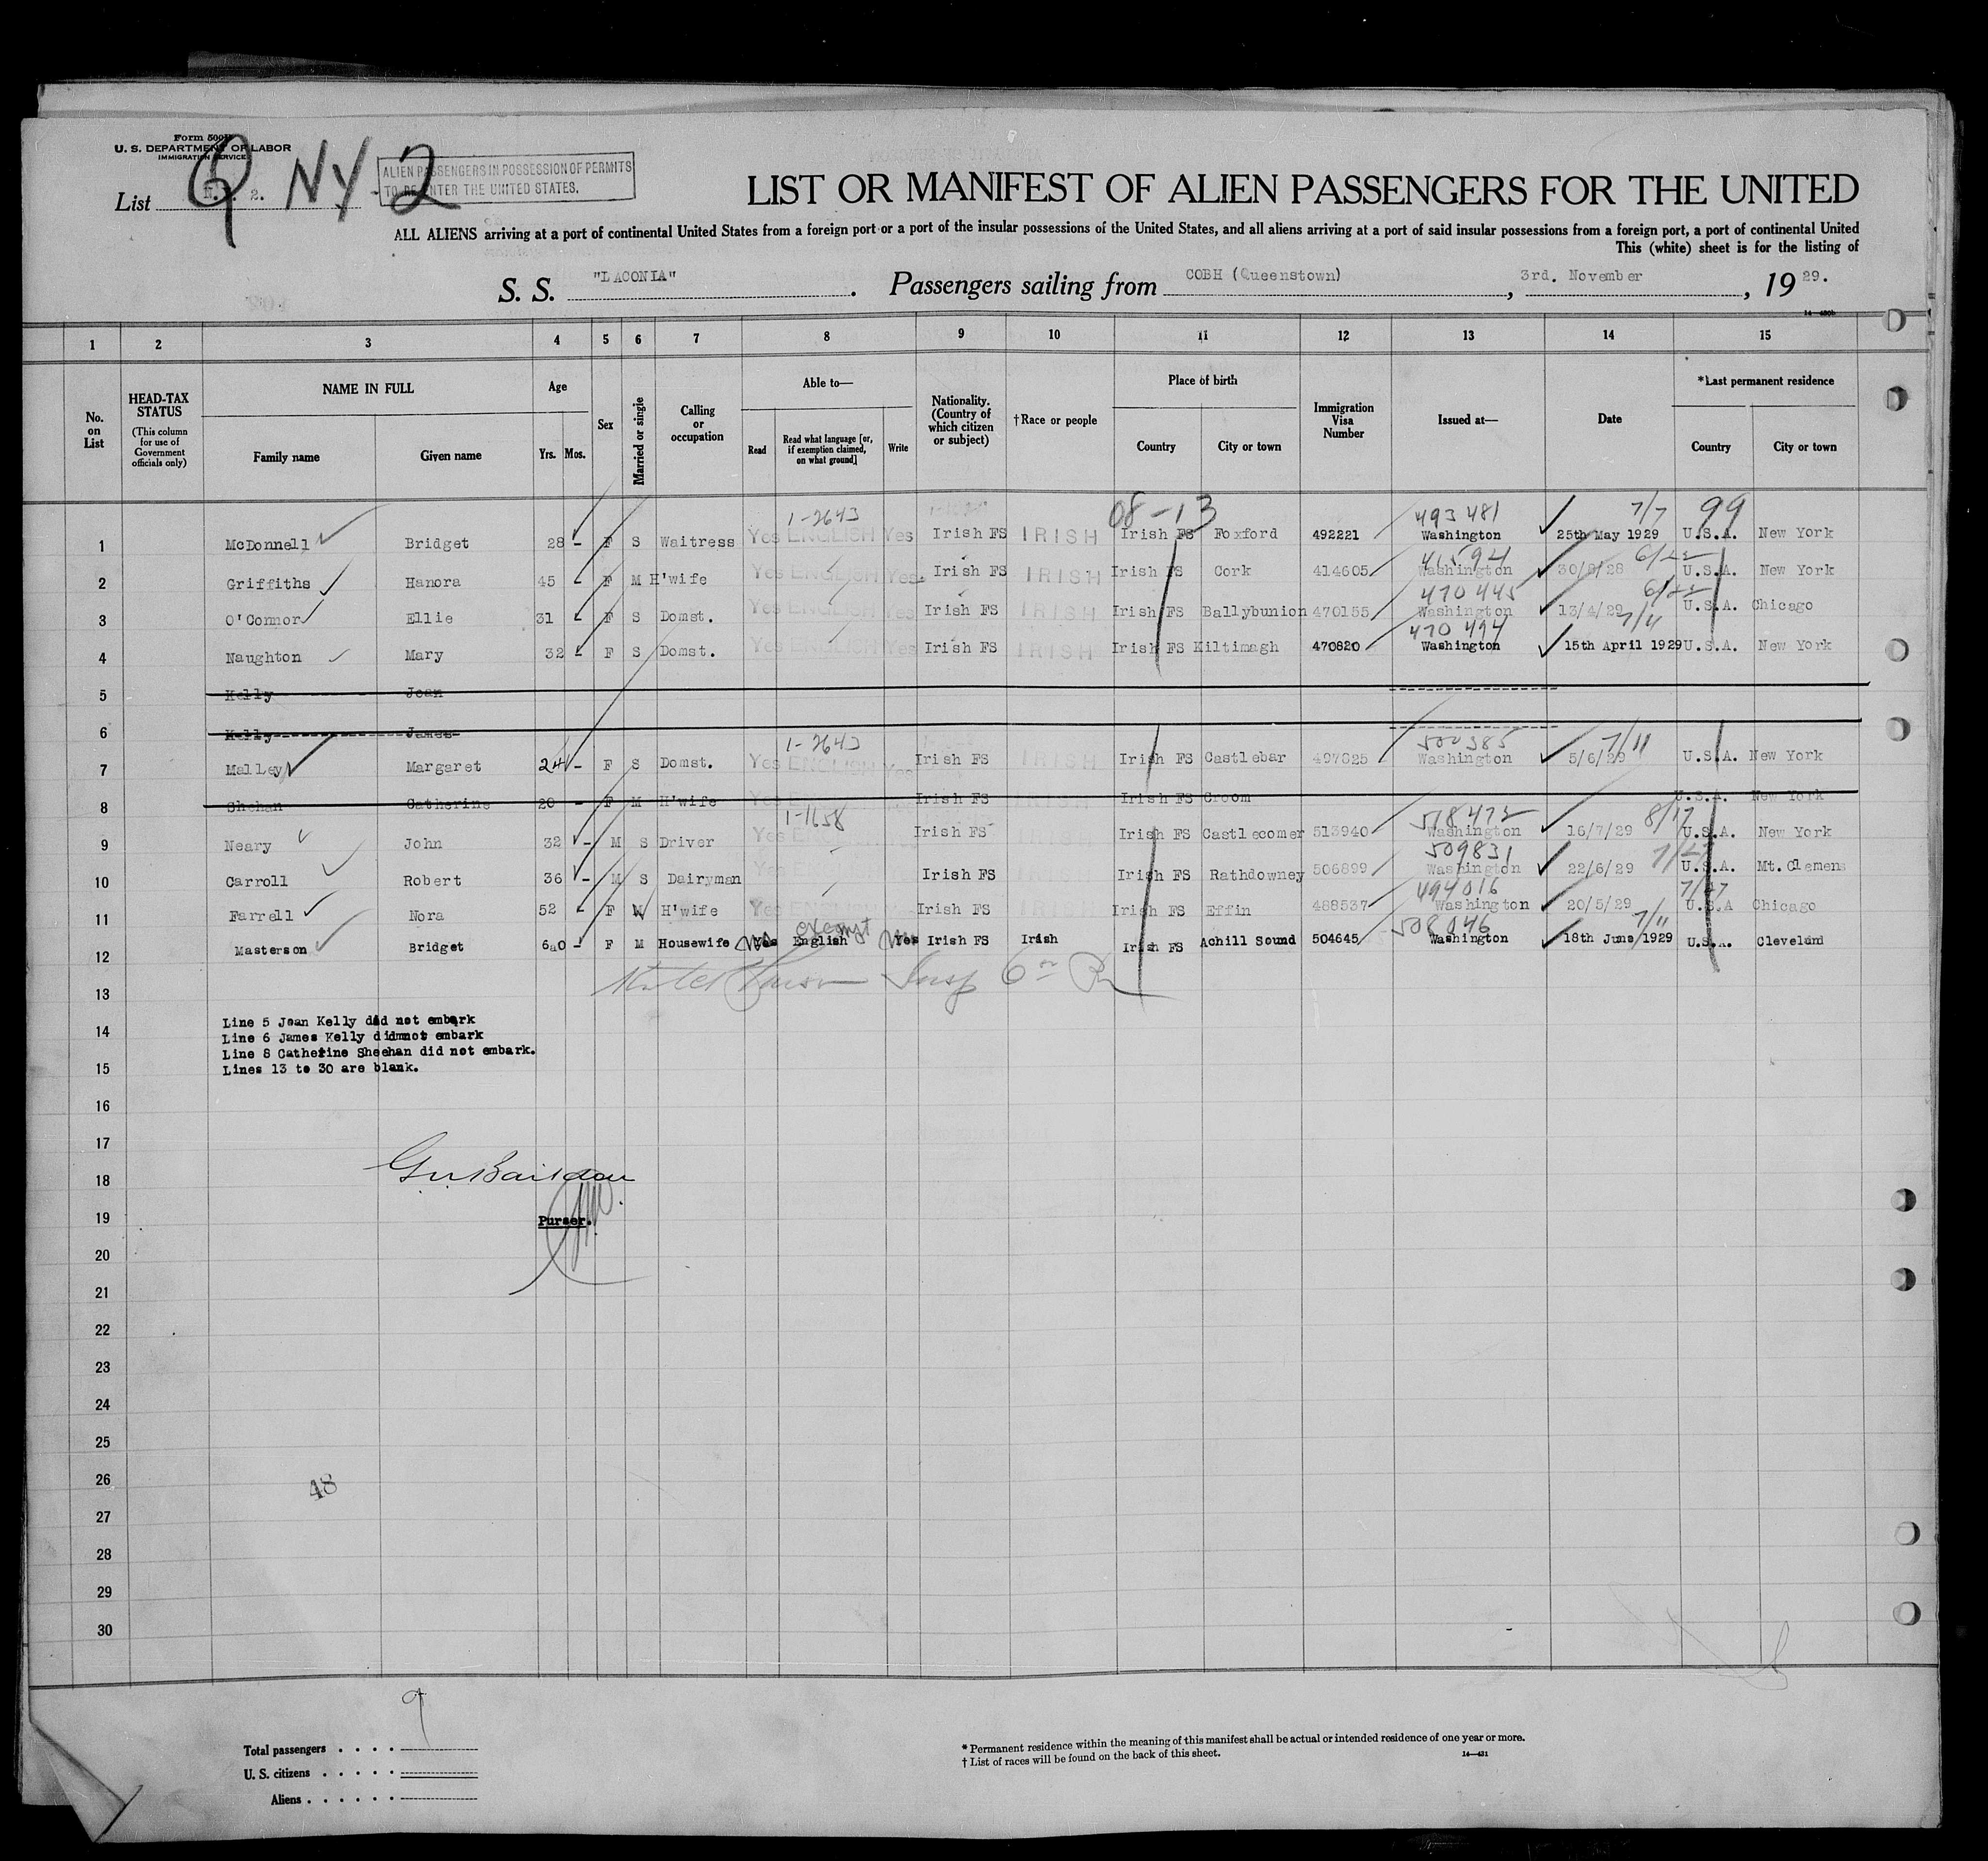 Form 500B
U. S. DEPARTMENT OF LABOR
IMMIGRATION SERVICE
List 2. 9 NY 2
ALIEN PASSENGERS IN POSSESSION OF PERMITS
TO RE-ENTER THE UNITED STATES.
LIST OR MANIFEST OF ALIEN PASSENGERS FOR THE UNITED
ALL ALIENS arriving at a port of continental United States from a foreign port or a port of the insular possessions of the United States, and all aliens arriving at a port of said insular possessions from a foreign port, a port of continental United
This (white) sheet is for the listing of
S. S. "LACONIA". Passengers sailing from COBH (Queenstown), 3rd. November, 19 29.
1 2 3 4 5 6 7 8 9 10 11 12 13 14 15
No. on List
HEAD-TAX STATUS (This column for use of Government officials only)
NAME IN FULL Family name Given name
Age Yrs. Mos.
Sex
Married or single
Calling or occupation
Able to— Read Read what language [or, if exemption claimed, on what ground] Write
Nationality. (Country of which citizen or subject)
†Race or people
Place of birth Country City or town
Immigration Visa Number
Issued at—
Date
*Last permanent residence Country City or town
1-2643 08-13 493481 7/7 99
1 McDonnell Bridget 28 - F S Waitress Yes ENGLISH Yes Irish FS IRISH Irish FS Foxford 492221 Washington 25th May 1929 U.S.A. New York
2 Griffiths Hanora 45 - F M H'wife Yes ENGLISH Yes Irish FS IRISH Irish FS Cork 414605 Washington 30/8/28 6/22 U.S.A. New York
470445 6/22
3 O'Connor Ellie 31 - F S Domst. Yes ENGLISH Yes Irish FS IRISH Irish FS Ballybunion 470155 Washington 13/4/29 U.S.A. Chicago
470494 7/11
4 Naughton Mary 32 - F S Domst. Yes ENGLISH Yes Irish FS IRISH Irish FS Kiltimagh 470820 Washington 15th April 1929 U.S.A. New York
5 Kelly Joan
6 Kelly James
1-2643 500385 7/11
7 Malley Margaret 24 - F S Domst. Yes ENGLISH Yes Irish FS IRISH Irish FS Castlebar 497825 Washington 5/6/29 U.S.A. New York
8 Shehan Catherine 20 - F M H'wife Yes Irish FS Irish FS Croom U.S.A. New York
1-1658 518472 8/17
9 Neary John 32 - M S Driver Yes Irish FS IRISH Irish FS Castlecomer 513940 Washington 16/7/29 U.S.A. New York
509831
10 Carroll Robert 36 - M S Dairyman Yes Irish FS IRISH Irish FS Rathdowney 506899 Washington 22/6/29 U.S.A. Mt. Clemens
494016 7/27
11 Farrell Nora 52 - F M H'wife Yes ENGLISH Irish FS IRISH Irish FS Effin 488537 Washington 20/5/29 U.S.A Chicago
exempt 508046 7/11
12 Masterson Bridget 60 - F M Housewife No Yes English No Yes Irish FS Irish Irish FS Achill Sound 504645 Washington 18th June 1929 U.S.A. Cleveland
13
Line 5 Joan Kelly did not embark
14
Line 6 James Kelly didmnot embark
Line 8 Catherine Sheehan did not embark.
15
Lines 13 to 30 are blank.
16
17
18
19 Purser.
20
21
22
23
24
25
26 48
27
28
29
30
9
Total passengers . . . .
U. S. citizens . . . . .
Aliens . . . . . .
* Permanent residence within the meaning of this manifest shall be actual or intended residence of one year or more.
† List of races will be found on the back of this sheet. 14—431